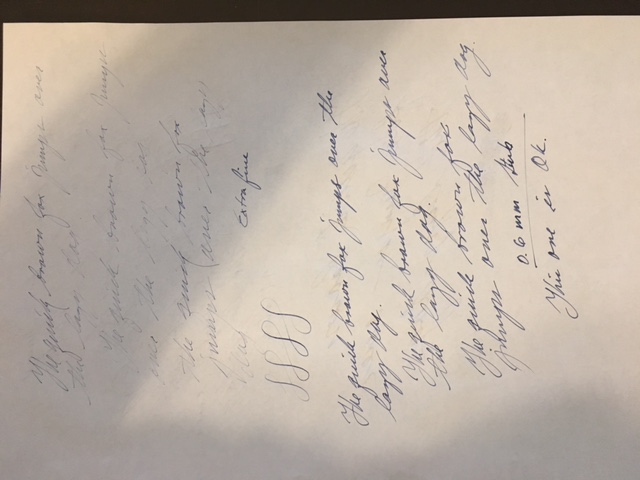 The quick brown fox jumps over
the lazy dog
The quick brown fox jumps
over the lazy dog
The quick brown fox
jumps over the lazy
dog
Extra fine
The quick brown fox jumps over the
lazy dog.
The quick brown fox jumps over
the lazy dog.
The quick brown fox
jumps over the lazy dog.
0.6 mm stub
This one is OK.